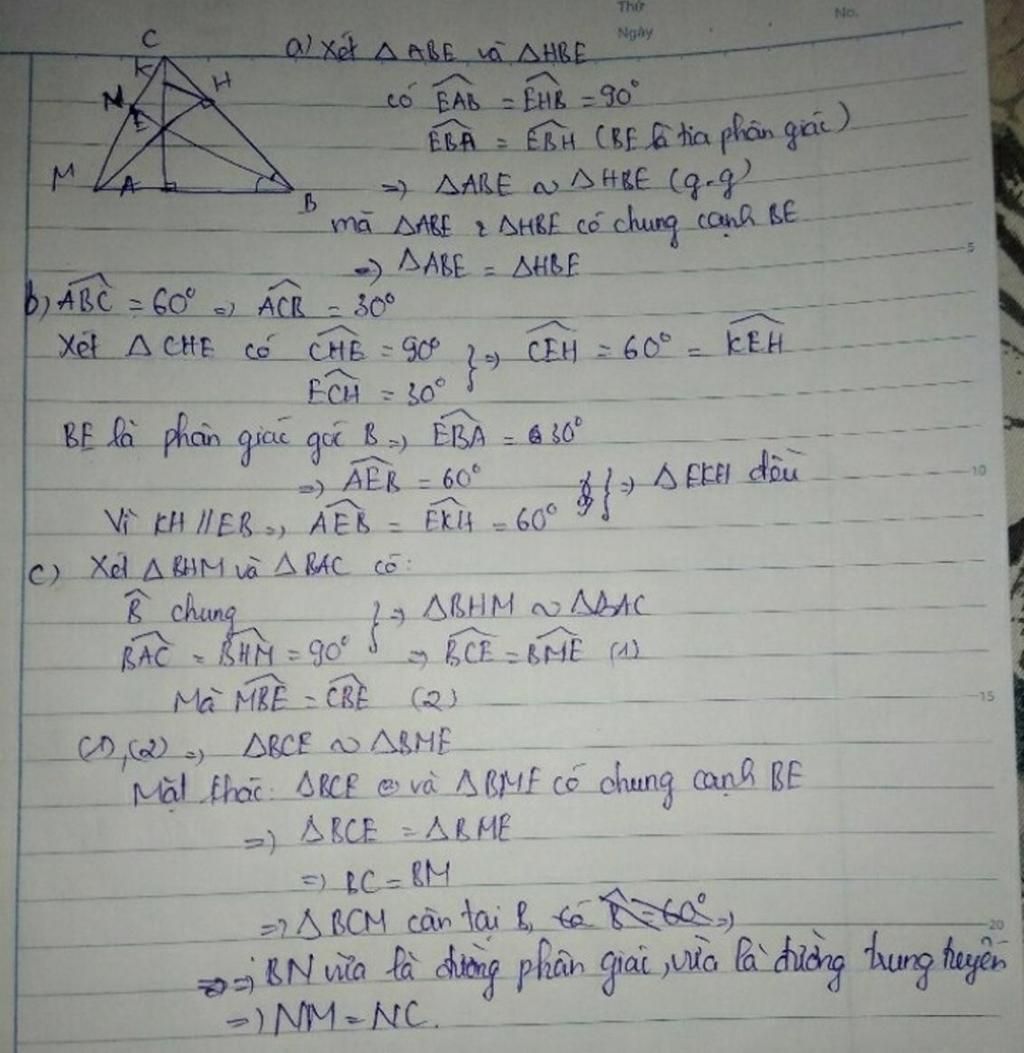 Thứ
Ngày
No.
C
K
H
N
E
M
A
B
a) Xét △ABE và △HBE
có EAB = EHB = 90°
EBA = EBH (BE là tia phân giác)
=> △ABE ~ △HBE (g-g)
mà △ABE & △HBE có chung cạnh BE
=> △ABE = △HBE
5
b) ABC = 60° => ACB = 30°
Xét △CHE có CHE = 90° } => CEH = 60° = KEH
ECH = 30°
BE là phân giác góc B => EBA = 30°
=> AEB = 60° } => △EKH đều
10
Vì KH // EB => AEB = EKH = 60°
c) Xét △BHM và △BAC có:
B chung } => △BHM ~ △BAC
BAC = BHM = 90° => BCE = BME (1)
Mà MBE = CBE (2)
15
(1), (2) => △BCE ~ △BME
Mặt khác: △BCE và △BME có chung cạnh BE
=> △BCE = △BME
=> BC = BM
=> △BCM cân tại B, có B = 60° =>
20
=> BN vừa là đường phân giác, vừa là đường trung tuyến
=> NM = NC.